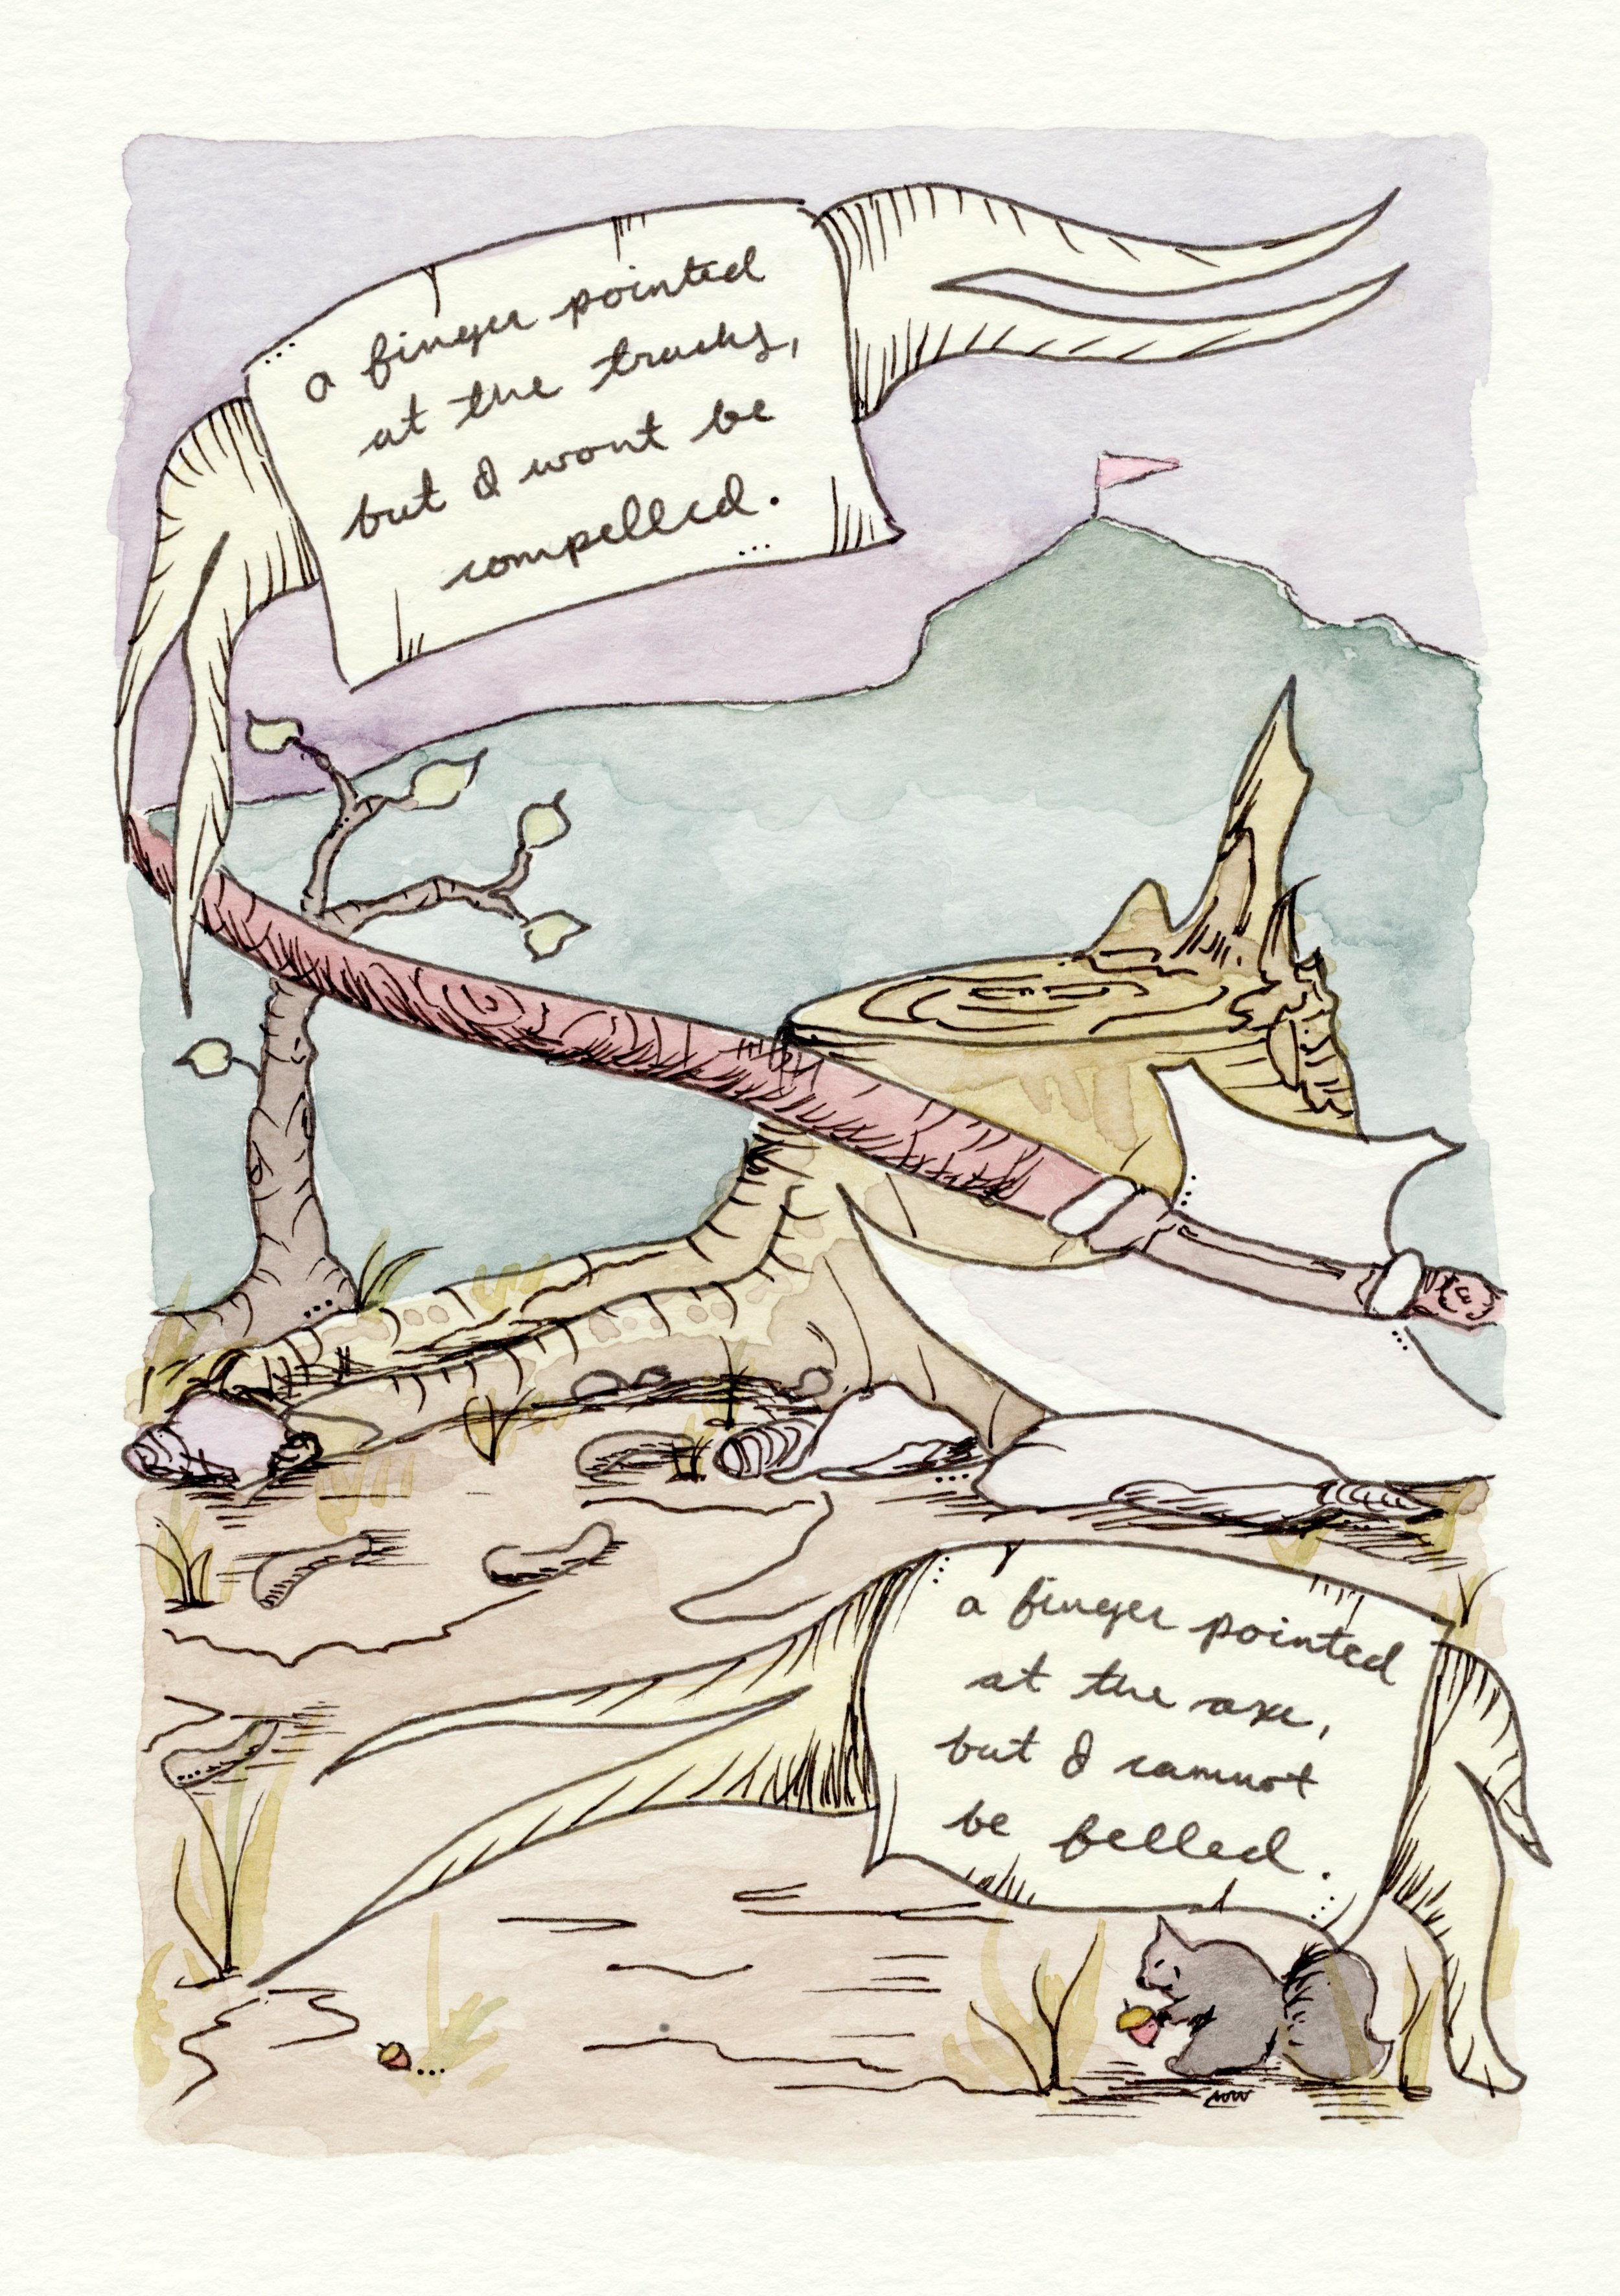 a finger pointed
at the tracks,
but I wont be
compelled.
a finger pointed
at the axe,
but I cannot
be felled.